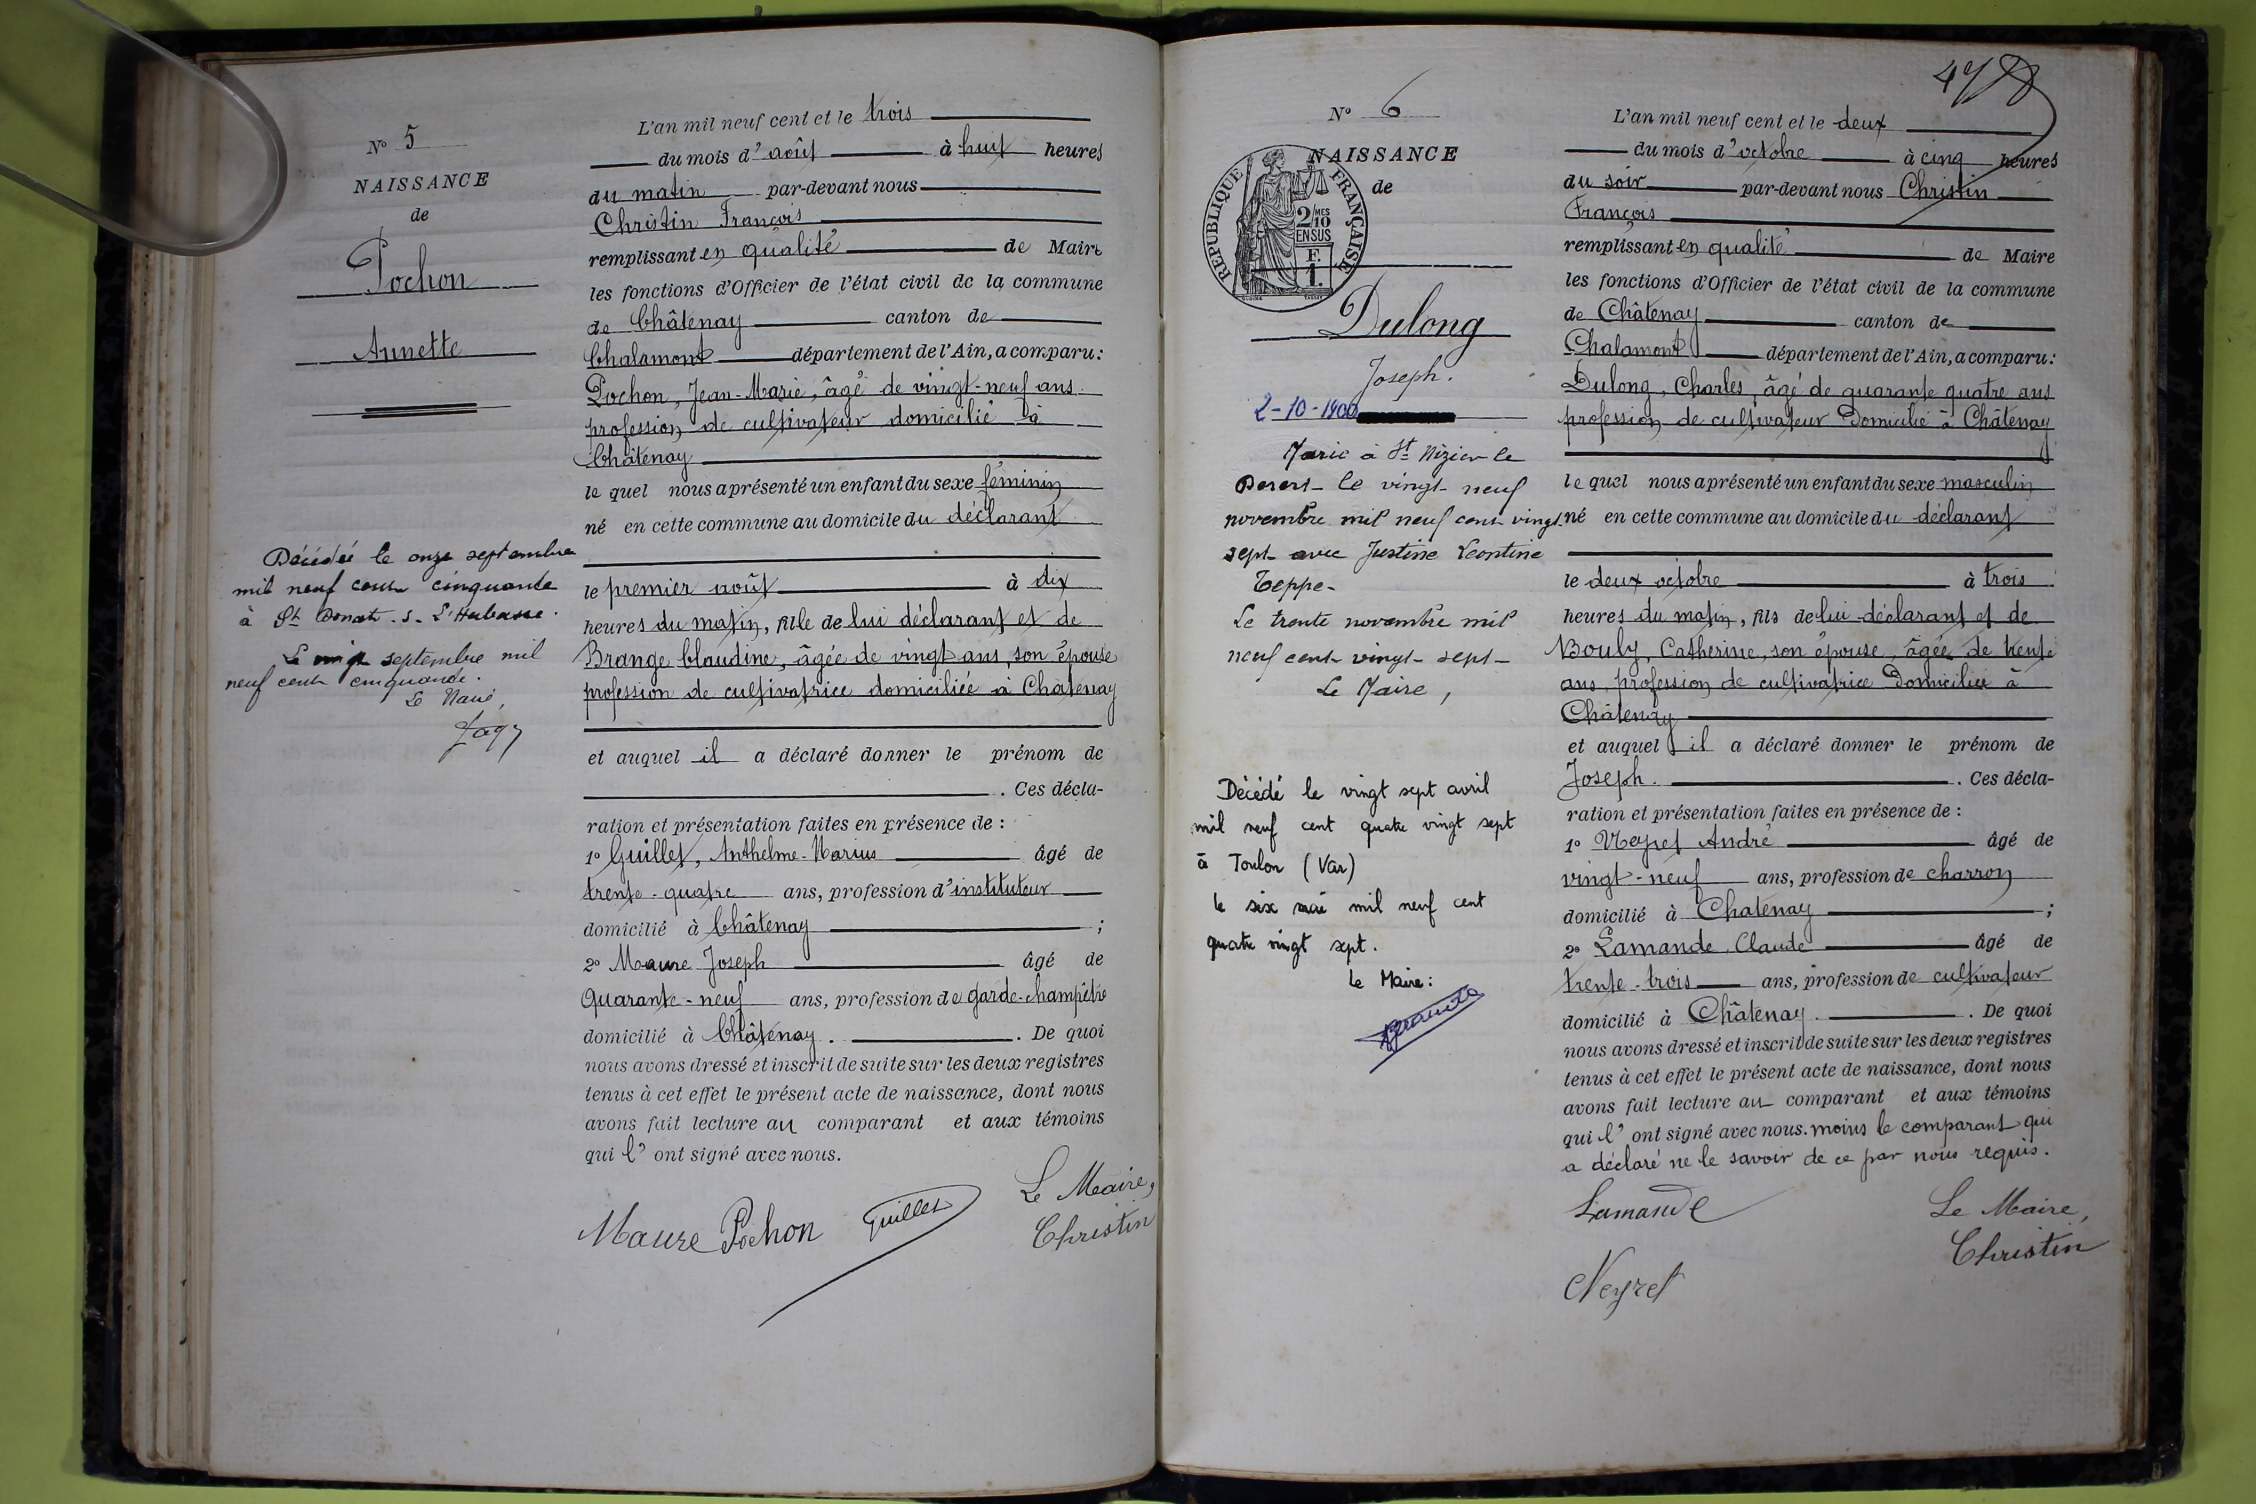 N° 5
NAISSANCE
de
Pochon
Annette
Décédée le onze septembre
mil neuf cent cinquante
à St Donat. s. L'Herbasse.
Le vingt septembre mil
neuf cent cinquante.
Le Maire,
L'an mil neuf cent et le trois
du mois d'août à huit heures
du matin par-devant nous
Christin François
remplissant en qualité de Maire
les fonctions d'Officier de l'état civil de la commune
de Châtenay canton de
Chalamont département de l'Ain, a comparu:
Pochon, Jean-Marie, âgé de vingt-neuf ans
profession de cultivateur domicilié à
Châtenay
le quel nous a présenté un enfant du sexe féminin
né en cette commune au domicile du déclarant
le premier août à dix
heures du matin, fille de lui déclarant et de
Brange Claudine, âgée de vingt ans, son épouse
profession de cultivatrice domiciliée à Chatenay
et auquel il a déclaré donner le prénom de
. Ces décla-
ration et présentation faites en présence de :
1° Guillet, Anthelme-Marius âgé de
trente-quatre ans, profession d'instituteur
domicilié à Châtenay ;
2° Maure Joseph âgé de
Quarante-neuf ans, profession de garde-champêtre
domicilié à Châtenay . . De quoi
nous avons dressé et inscrit de suite sur les deux registres
tenus à cet effet le présent acte de naissance, dont nous
avons fait lecture au comparant et aux témoins
qui l' ont signé avec nous.
Maure Pochon Guillet
Le Maire,
Christin
N° 6
NAISSANCE
de
RÉPUBLIQUE FRANÇAISE
2 MES
10
EN SUS
F.
1.
Dulong
Joseph.
2-10-1900
Marié à St Nizier le
Desert le vingt neuf
novembre mil neuf cent vingt
sept avec Justine Leontine
Teppe-
Le trente novembre mil
neuf cent vingt sept
Le Maire,
Décédé le vingt sept avril
mil neuf cent quatre vingt sept
à Toulon (Var)
le six mai mil neuf cent
quatre vingt sept.
le Maire:
L'an mil neuf cent et le deux
du mois d'octobre à cinq heures
du soir par-devant nous Christin
François
remplissant en qualité de Maire
les fonctions d'Officier de l'état civil de la commune
de Châtenay canton de
Chalamont département de l'Ain, a comparu:
Dulong, Charles, âgé de quarante quatre ans
profession de cultivateur Domicilié à Châtenay
le quel nous a présenté un enfant du sexe masculin
né en cette commune au domicile du déclarant
le deux octobre à trois
heures du matin, fils de lui déclarant et de
Bouly, Catherine, son épouse, âgée de trente
ans, profession de cultivatrice Domiciliée à
Châtenay
et auquel il a déclaré donner le prénom de
Joseph. . Ces décla-
ration et présentation faites en présence de :
1° Neyret André âgé de
vingt-neuf ans, profession de charron
domicilié à Chatenay ;
2° Lamande Claude âgé de
trente-trois ans, profession de cultivateur
domicilié à Châtenay. . De quoi
nous avons dressé et inscrit de suite sur les deux registres
tenus à cet effet le présent acte de naissance, dont nous
avons fait lecture au comparant et aux témoins
qui l' ont signé avec nous. moins le comparant qui
a déclaré ne le savoir de ce par nous requis.
Lamande
Le Maire,
Christin
Neyret